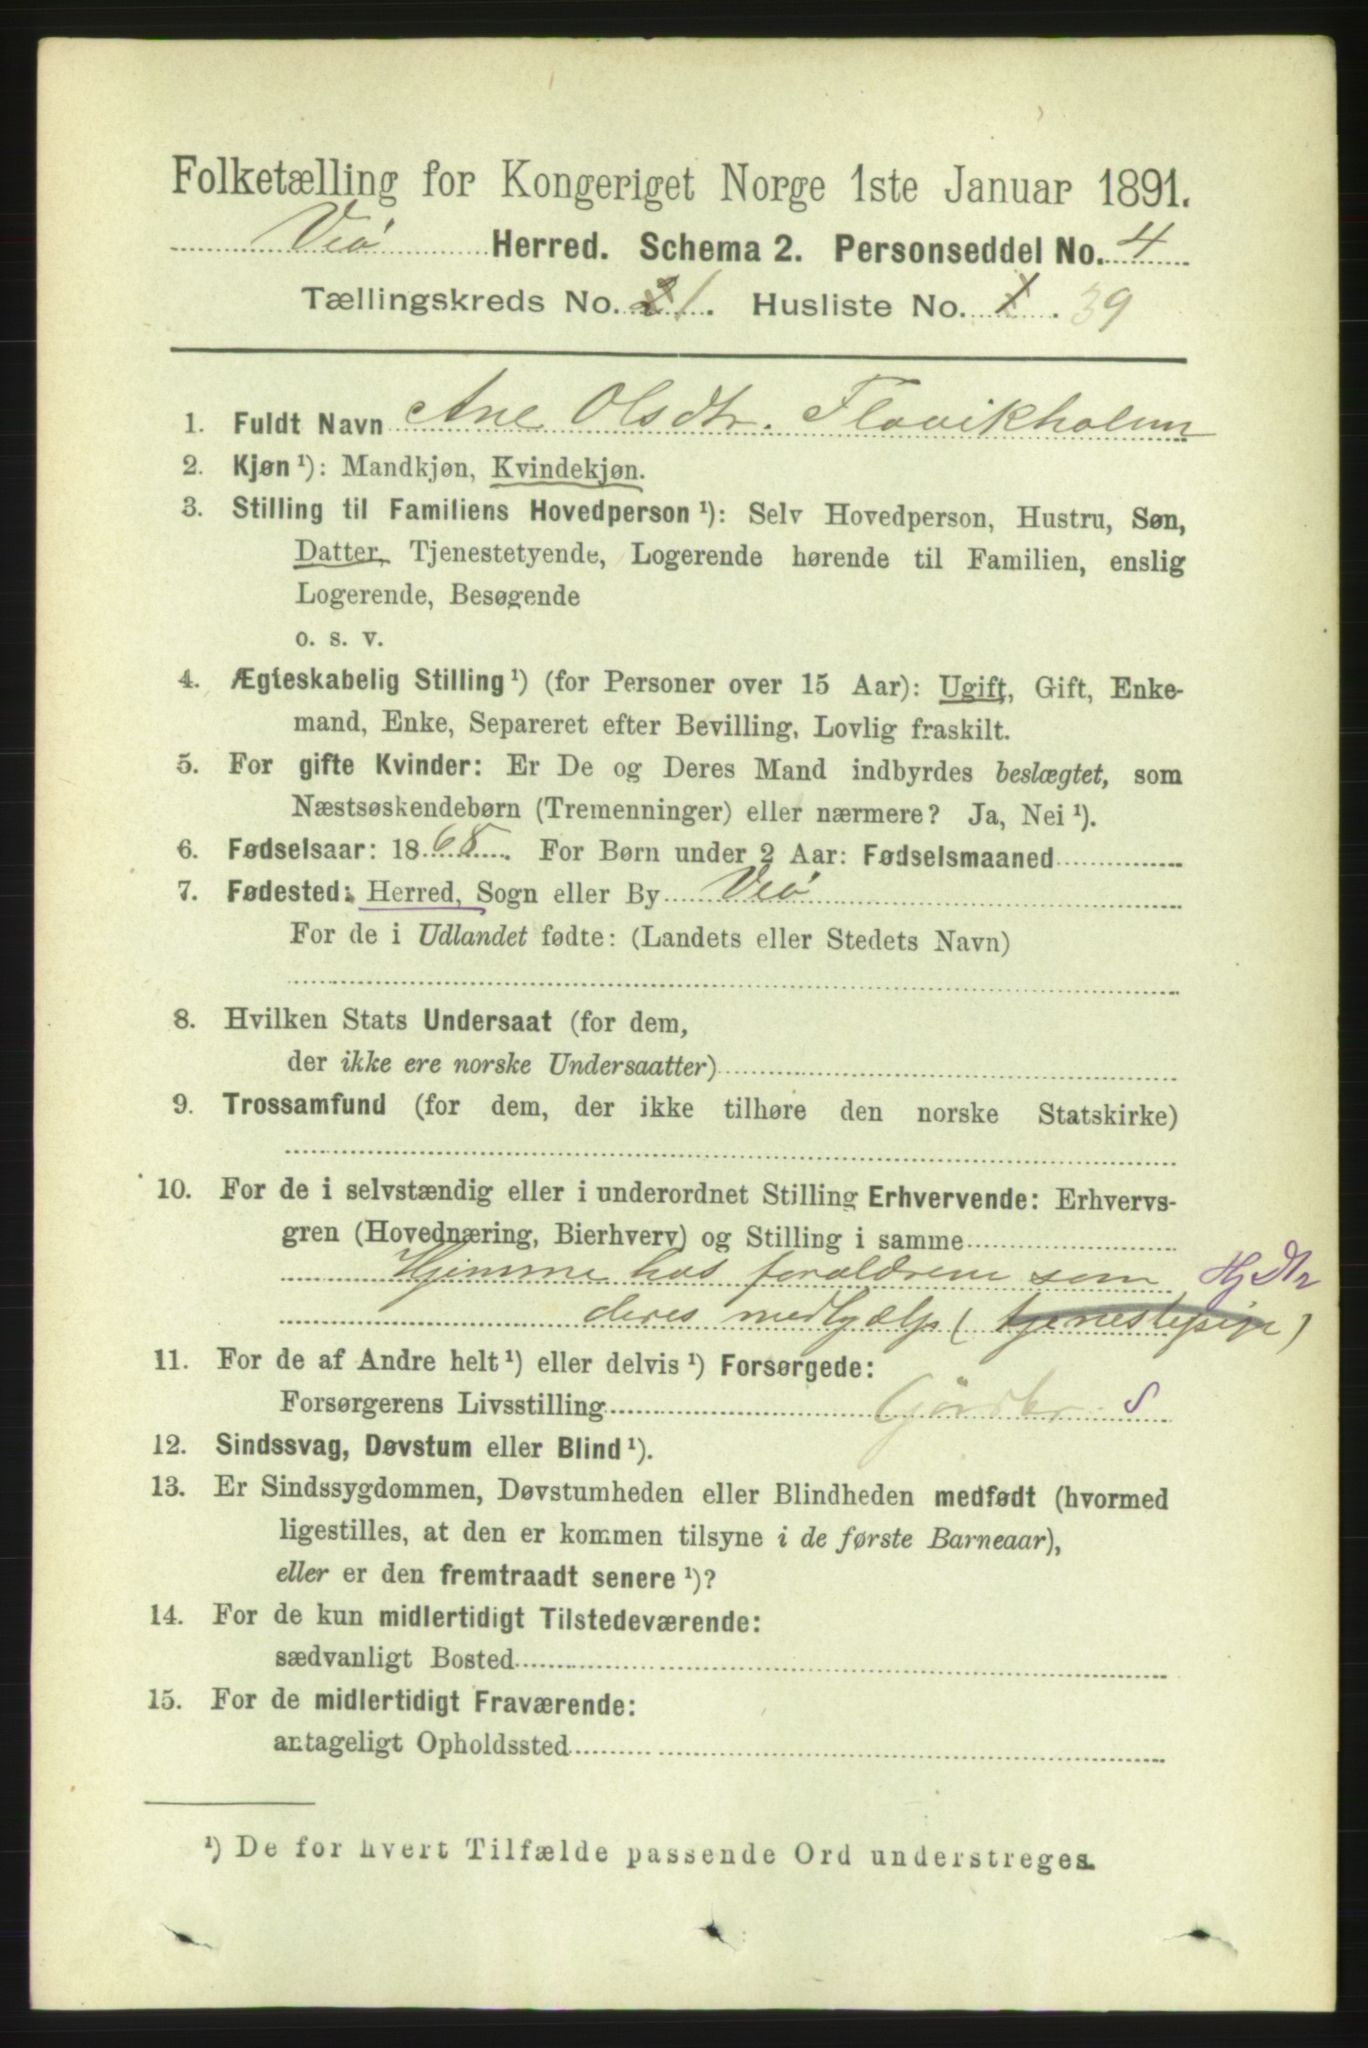 Folketælling for Kongeriget Norge 1ste Januar 1891.
Veø Herred. Schema 2. Personseddel No. 4
Tællingskreds No. 21. Husliste No. 1. 39
1. Fuldt Navn Ane Olsdtr. Flovikholm
2. Kjøn ¹): Mandkjøn, Kvindekjøn.
3. Stilling til Familiens Hovedperson ¹): Selv Hovedperson, Hustru, Søn,
Datter, Tjenestetyende, Logerende hørende til Familien, enslig
Logerende, Besøgende
o. s. v.
4. Ægteskabelig Stilling ¹) (for Personer over 15 Aar): Ugift, Gift, Enke-
mand, Enke, Separeret efter Bevilling, Lovlig fraskilt.
5. For gifte Kvinder: Er De og Deres Mand indbyrdes beslægtet, som
Næstsøskendebørn (Tremenninger) eller nærmere? Ja, Nei ¹).
6. Fødselsaar: 1868. For Børn under 2 Aar: Fødselsmaaned
7. Fødested: Herred, Sogn eller By Veø
For de i Udlandet fødte: (Landets eller Stedets Navn)
8. Hvilken Stats Undersaat (for dem,
der ikke ere norske Undersaatter)
9. Trossamfund (for dem, der ikke tilhøre den norske Statskirke)
10. For de i selvstændig eller i underordnet Stilling Erhvervende: Erhvervs-
gren (Hovednæring, Bierhverv) og Stilling i samme
Hjemme hos forældrene som Hj Dtr
deres medhjælp (tjenestepige)
11. For de af Andre helt ¹) eller delvis ¹) Forsørgede:
Forsørgerens Livsstilling S
12. Sindssvag, Døvstum eller Blind ¹).
13. Er Sindssygdommen, Døvstumheden eller Blindheden medfødt (hvormed
ligestilles, at den er kommen tilsyne i de første Barneaar),
eller er den fremtraadt senere ¹)?
14. For de kun midlertidigt Tilstedeværende:
sædvanligt Bosted
15. For de midlertidigt Fraværende:
antageligt Opholdssted
¹) De for hvert Tilfælde passende Ord understreges.